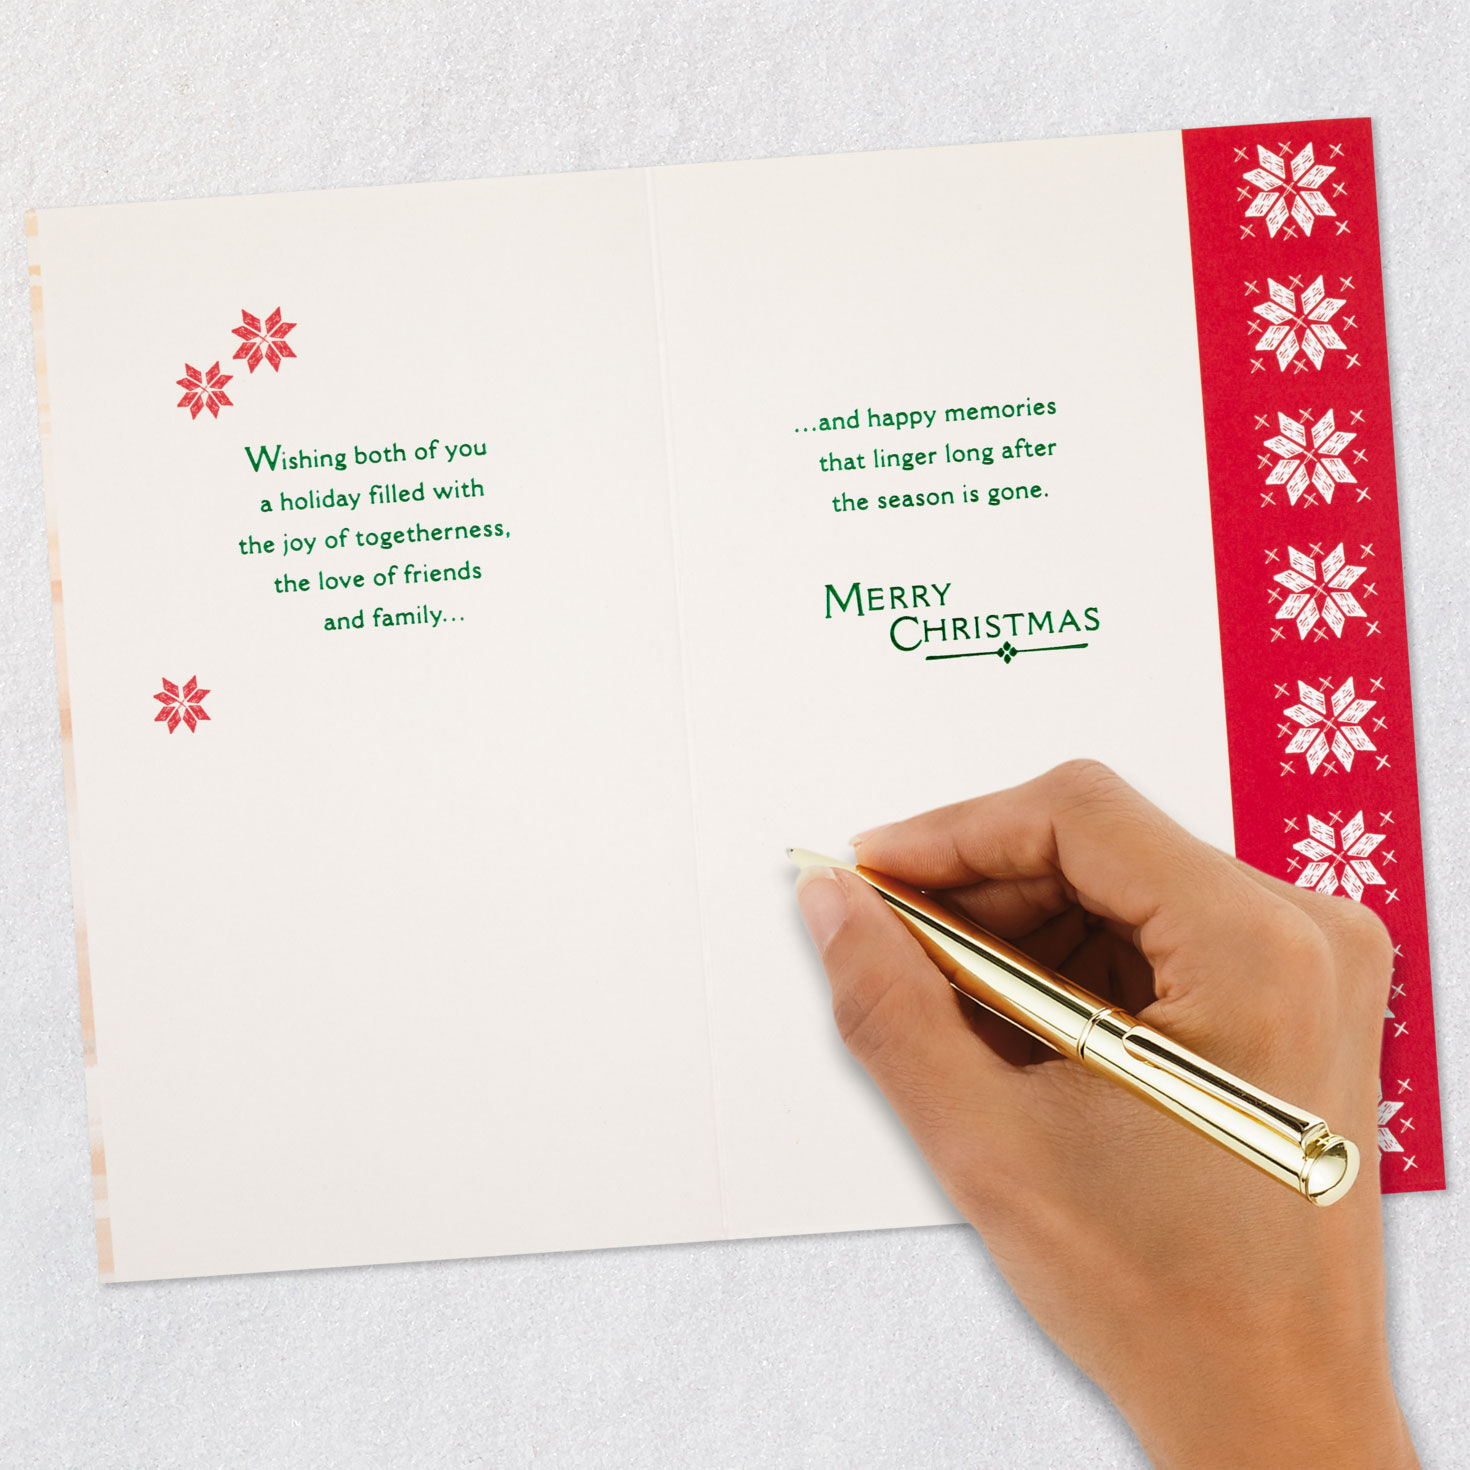 Wishing both of you
a holiday filled with
the joy of togetherness,
the love of friends
and family...
...and happy memories
that linger long after
the season is gone.
MERRY
CHRISTMAS